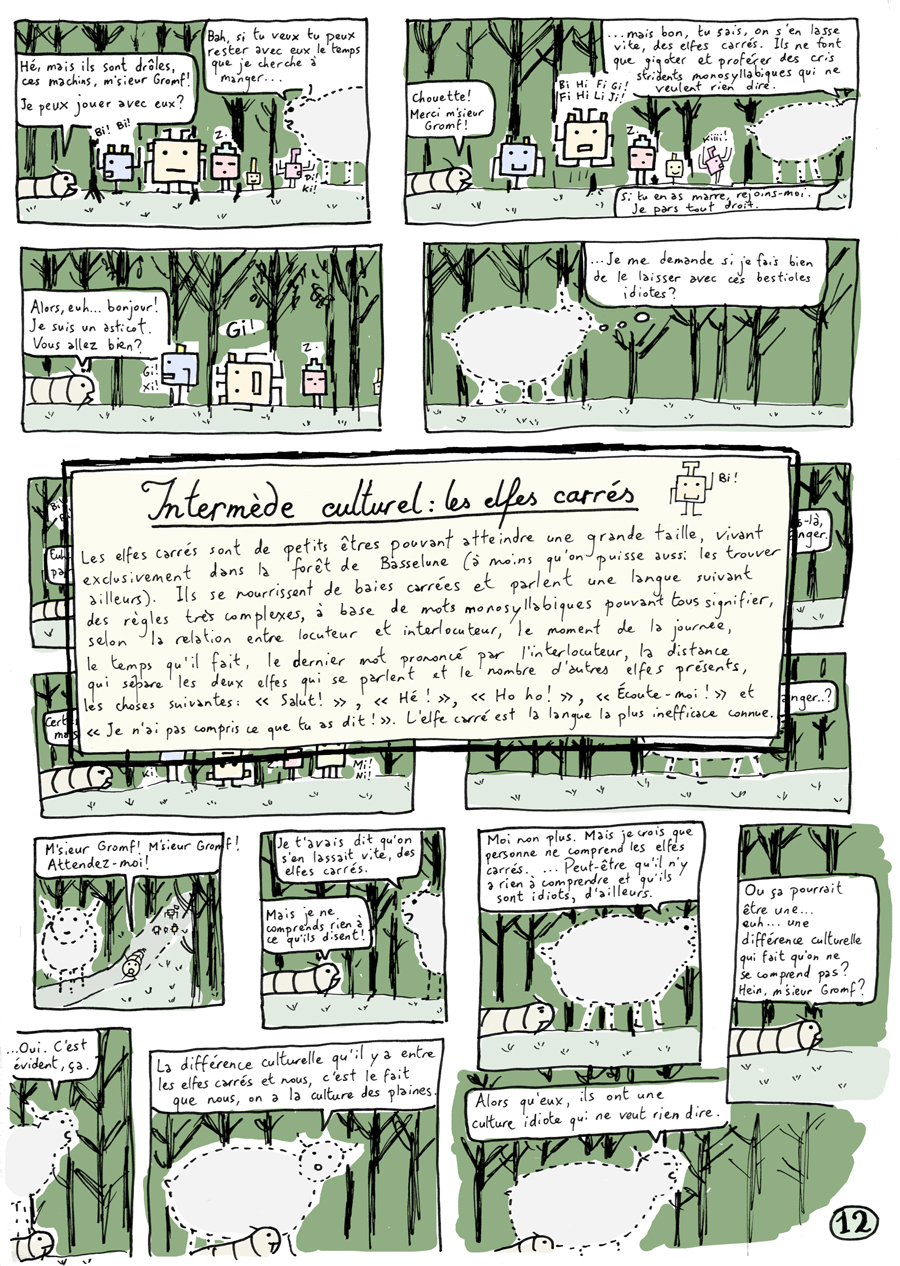 Hé, mais ils sont drôles,
ces machins, m'sieur Gromf!
Je peux jouer avec eux?
Bah, si tu veux tu peux
rester avec eux le temps
que je cherche à
manger...
Bi! Bi!
Z.
Di!
Ki!
...mais bon, tu sais, on s'en lasse
vite, des elfes carrés. Ils ne font
que gigoter et proférer des cris
stridents monosyllabiques qui ne
veulent rien dire.
Chouette!
Merci m'sieur
Gromf!
Bi Hi Fi Gi!
Fi Hi Li Ji!
Z.
Kiiii!
Si tu en as marre, rejoins-moi.
Je pars tout droit.
Alors, euh... bonjour!
Je suis un asticot.
Vous allez bien?
Gi!
Gi!
Xi!
Z.
...Je me demande si je fais bien
de le laisser avec ces bestioles
idiotes?
Intermède culturel: les elfes carrés
Bi!
Les elfes carrés sont de petits êtres pouvant atteindre une grande taille, vivant
exclusivement dans la forêt de Basselune (à moins qu'on puisse aussi les trouver
ailleurs). Ils se nourrissent de baies carrées et parlent une langue suivant
des règles très complexes, à base de mots monosyllabiques pouvant tous signifier,
selon la relation entre locuteur et interlocuteur, le moment de la journée,
le temps qu'il fait, le dernier mot prononcé par l'interlocuteur, la distance
qui sépare les deux elfes qui se parlent et le nombre d'autres elfes présents,
les choses suivantes: « Salut! », « Hé! », « Ho ho! », « Écoute-moi! » et
« Je n'ai pas compris ce que tu as dit! ». L'elfe carré est la langue la plus inefficace connue.
Bi!
Euh
pa
s-là,
anger.
Cert
mais
anger..?
Ki!
Mi!
Ni!
M'sieur Gromf! M'sieur Gromf!
Attendez-moi!
Je t'avais dit qu'on
s'en lassait vite, des
elfes carrés.
Mais je ne
comprends rien à
ce qu'ils disent!
Moi non plus. Mais je crois que
personne ne comprend les elfes
carrés. ...Peut-être qu'il n'y
a rien à comprendre et qu'ils
sont idiots, d'ailleurs.
Ou ça pourrait
être une...
euh... une
différence culturelle
qui fait qu'on ne
se comprend pas?
Hein, m'sieur Gromf?
...Oui. C'est
évident, ça.
La différence culturelle qu'il y a entre
les elfes carrés et nous, c'est le fait
que nous, on a la culture des plaines.
Alors qu'eux, ils ont une
culture idiote qui ne veut rien dire.
12